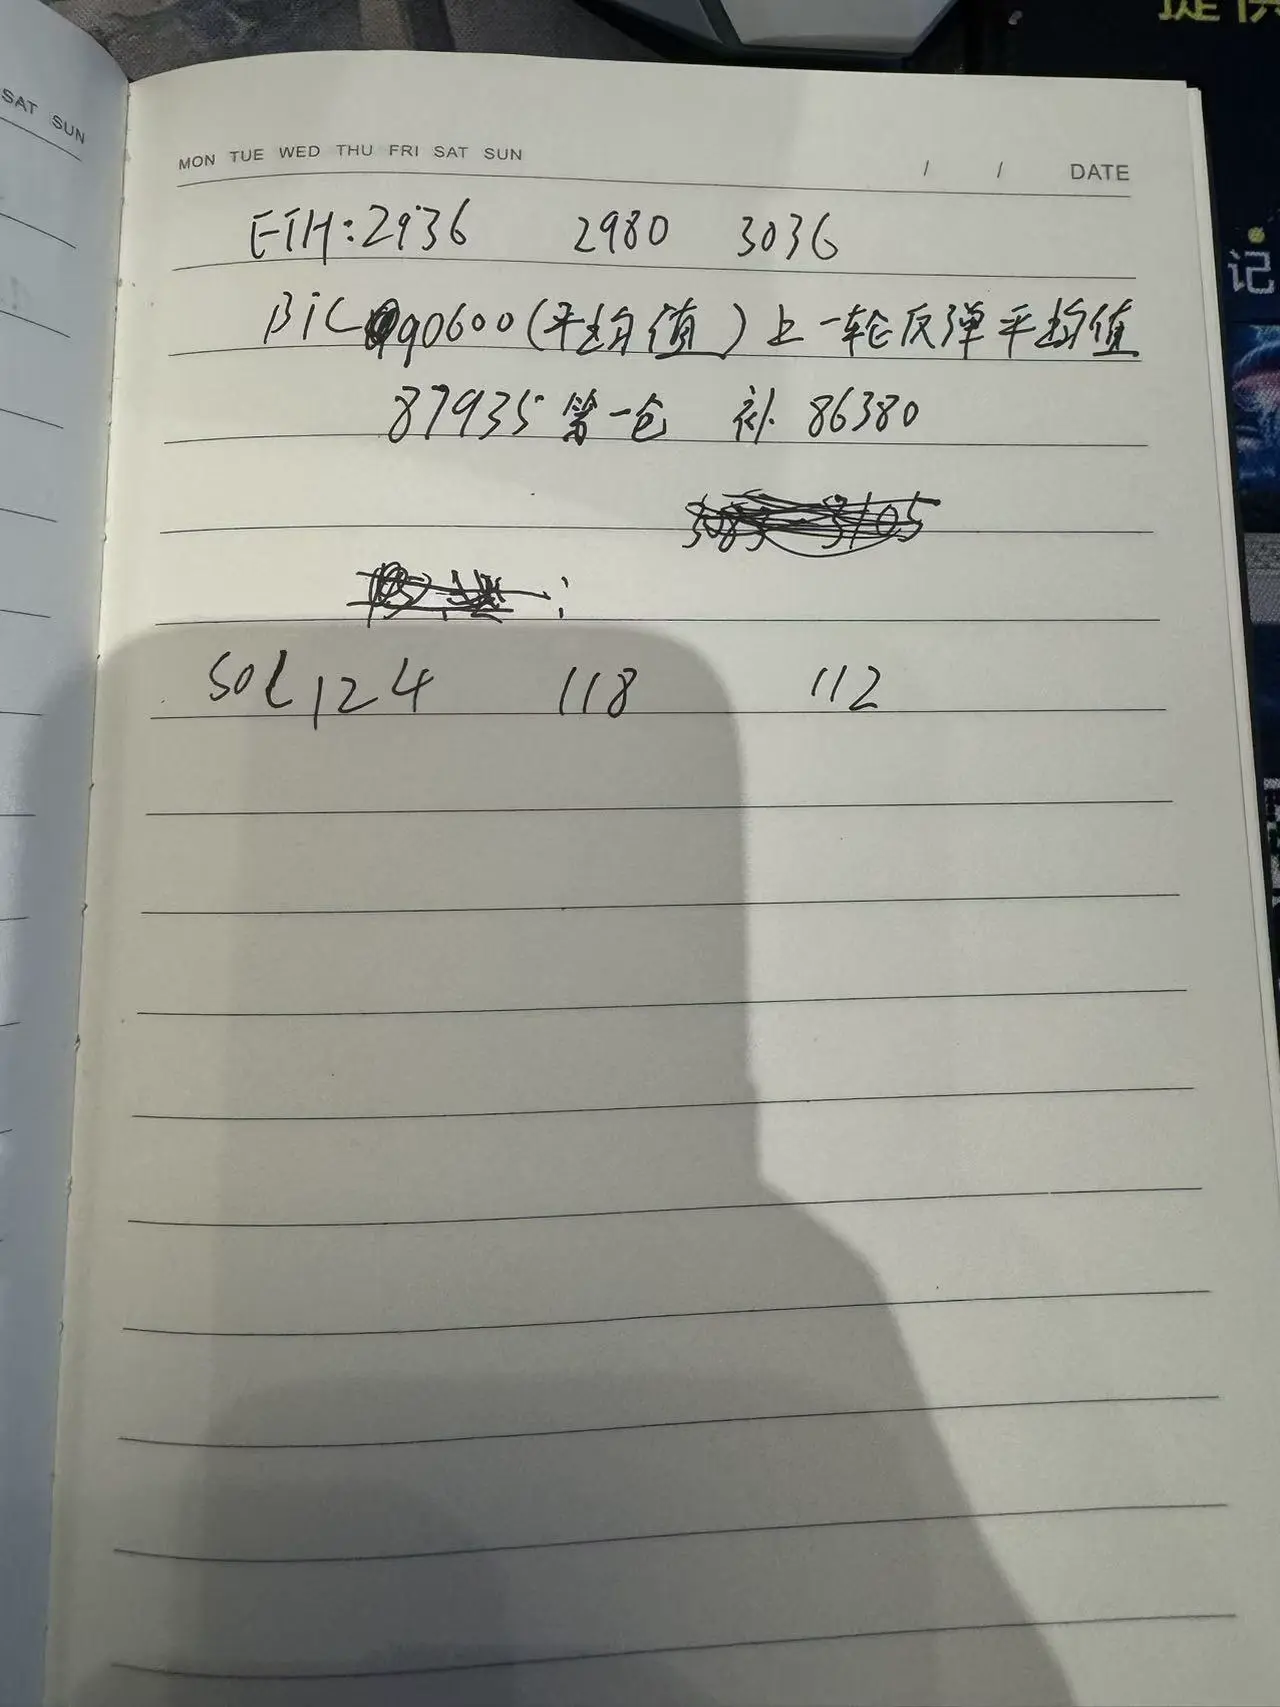 SAT SUN
提供
MON TUE WED THU FRI SAT SUN / / DATE
ETH:2936 2980 3036
记
BTC 90600(平均值)上一轮反弹平均值
87935 第一仓 补 86380
SOL 124 118 112